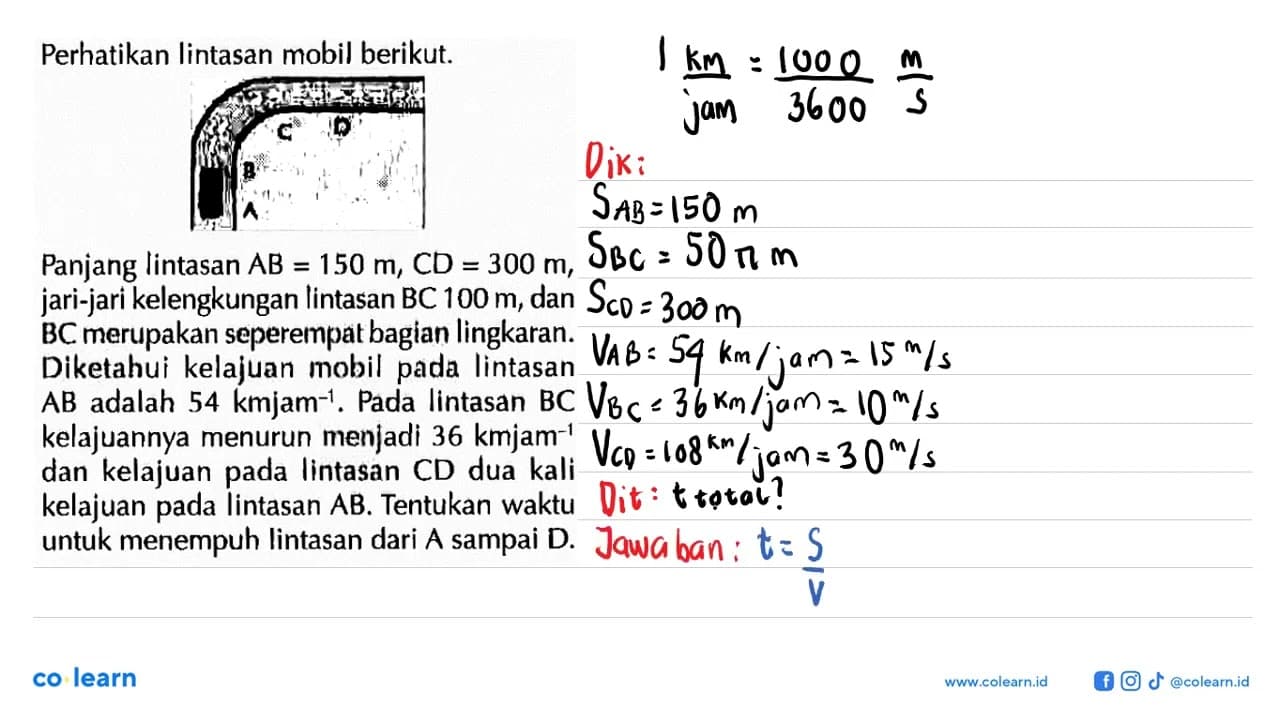 Perhatikan lintasan mobil berikut.
C D
B
A
Panjang lintasan AB = 150 m, CD = 300 m,
jari-jari kelengkungan lintasan BC 100 m, dan
BC merupakan seperempat bagian lingkaran.
Diketahui kelajuan mobil pada lintasan
AB adalah 54 kmjam⁻¹. Pada lintasan BC
kelajuannya menurun menjadi 36 kmjam⁻¹
dan kelajuan pada lintasan CD dua kali
kelajuan pada lintasan AB. Tentukan waktu
untuk menempuh lintasan dari A sampai D.
1 km/jam = 1000/3600 m/s
Dik:
S_AB = 150 m
S_BC = 50 π m
S_CD = 300 m
V_AB = 54 km/jam = 15 m/s
V_BC = 36 km/jam = 10 m/s
V_CD = 108 km/jam = 30 m/s
Dit: t total?
Jawaban: t = S/V
co learn
www.colearn.id
@colearn.id